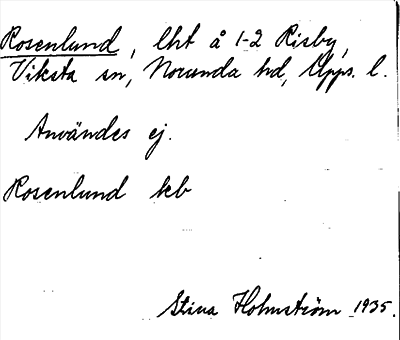 Rosenlund, lht å 1-2 Risby,
Viksta sn, Norunda hd, Upps. l.
Användes ej.
Rosenlund kb
Stina Holmström 1935.